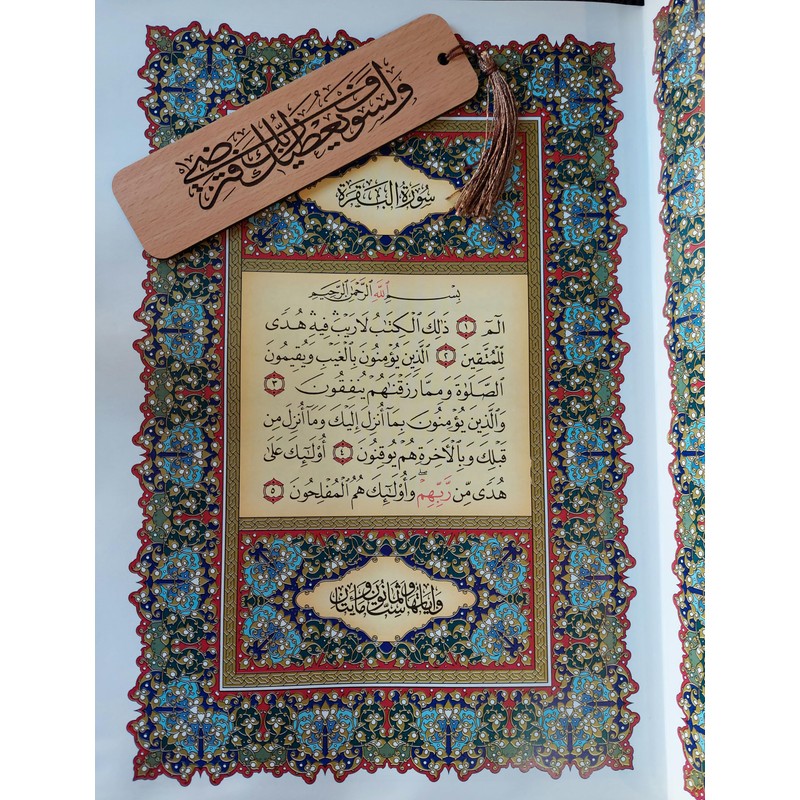 ولسوف يعطيك ربك فترضى
سُورَةُ الْبَقَرَةِ
بِسْمِ اللَّهِ الرَّحْمَٰنِ الرَّحِيمِ
الٓمٓ ۝١ ذَٰلِكَ الْكِتَٰبُ لَا رَيْبَ فِيهِ هُدًى
لِّلْمُتَّقِينَ ۝٢ الَّذِينَ يُؤْمِنُونَ بِالْغَيْبِ وَيُقِيمُونَ
الصَّلَوٰةَ وَمِمَّا رَزَقْنَٰهُمْ يُنفِقُونَ ۝٣
وَالَّذِينَ يُؤْمِنُونَ بِمَآ أُنزِلَ إِلَيْكَ وَمَآ أُنزِلَ مِن
قَبْلِكَ وَبِالْأَخِرَةِ هُمْ يُوقِنُونَ ۝٤ أُو۟لَٰٓئِكَ عَلَىٰ
هُدًى مِّن رَّبِّهِمْ ۖ وَأُو۟لَٰٓئِكَ هُمُ الْمُفْلِحُونَ ۝٥
وآياتها ست وثمانون ومائتان